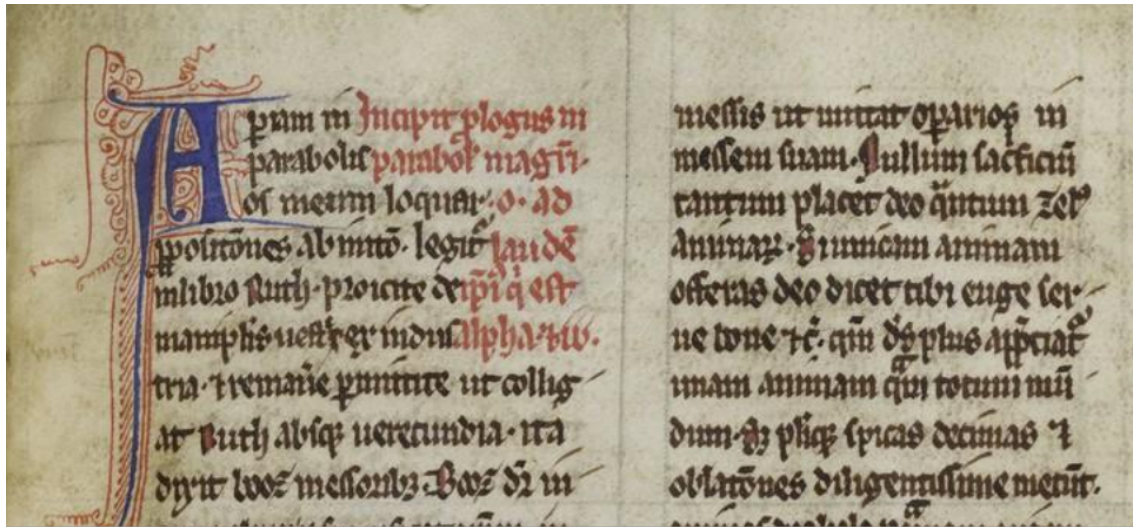 Aperiam in Incipit plogus in
parabolis parabol magri.
os meum loquar. o. ad
ppositones ab inito. legit laude
in libro Ruth. proicite de ipi q est
manipulis ex indus alpha. et
tria. et remane permittite ut collig
at Ruth absq uerecundia. ita
dixit booz messorib3. Booz dr in
messis ut mittat operarios in
messem suam. Nullum sacficiu
tantum placet deo qntum zel
animarum. Si unicam animam
offeras deo dicet tibi euge ser
ue bone et c. qm ds plus appciat
unam animam qm totum mu
dum. plsq spicas decimas et
oblatones diligentissime metut.